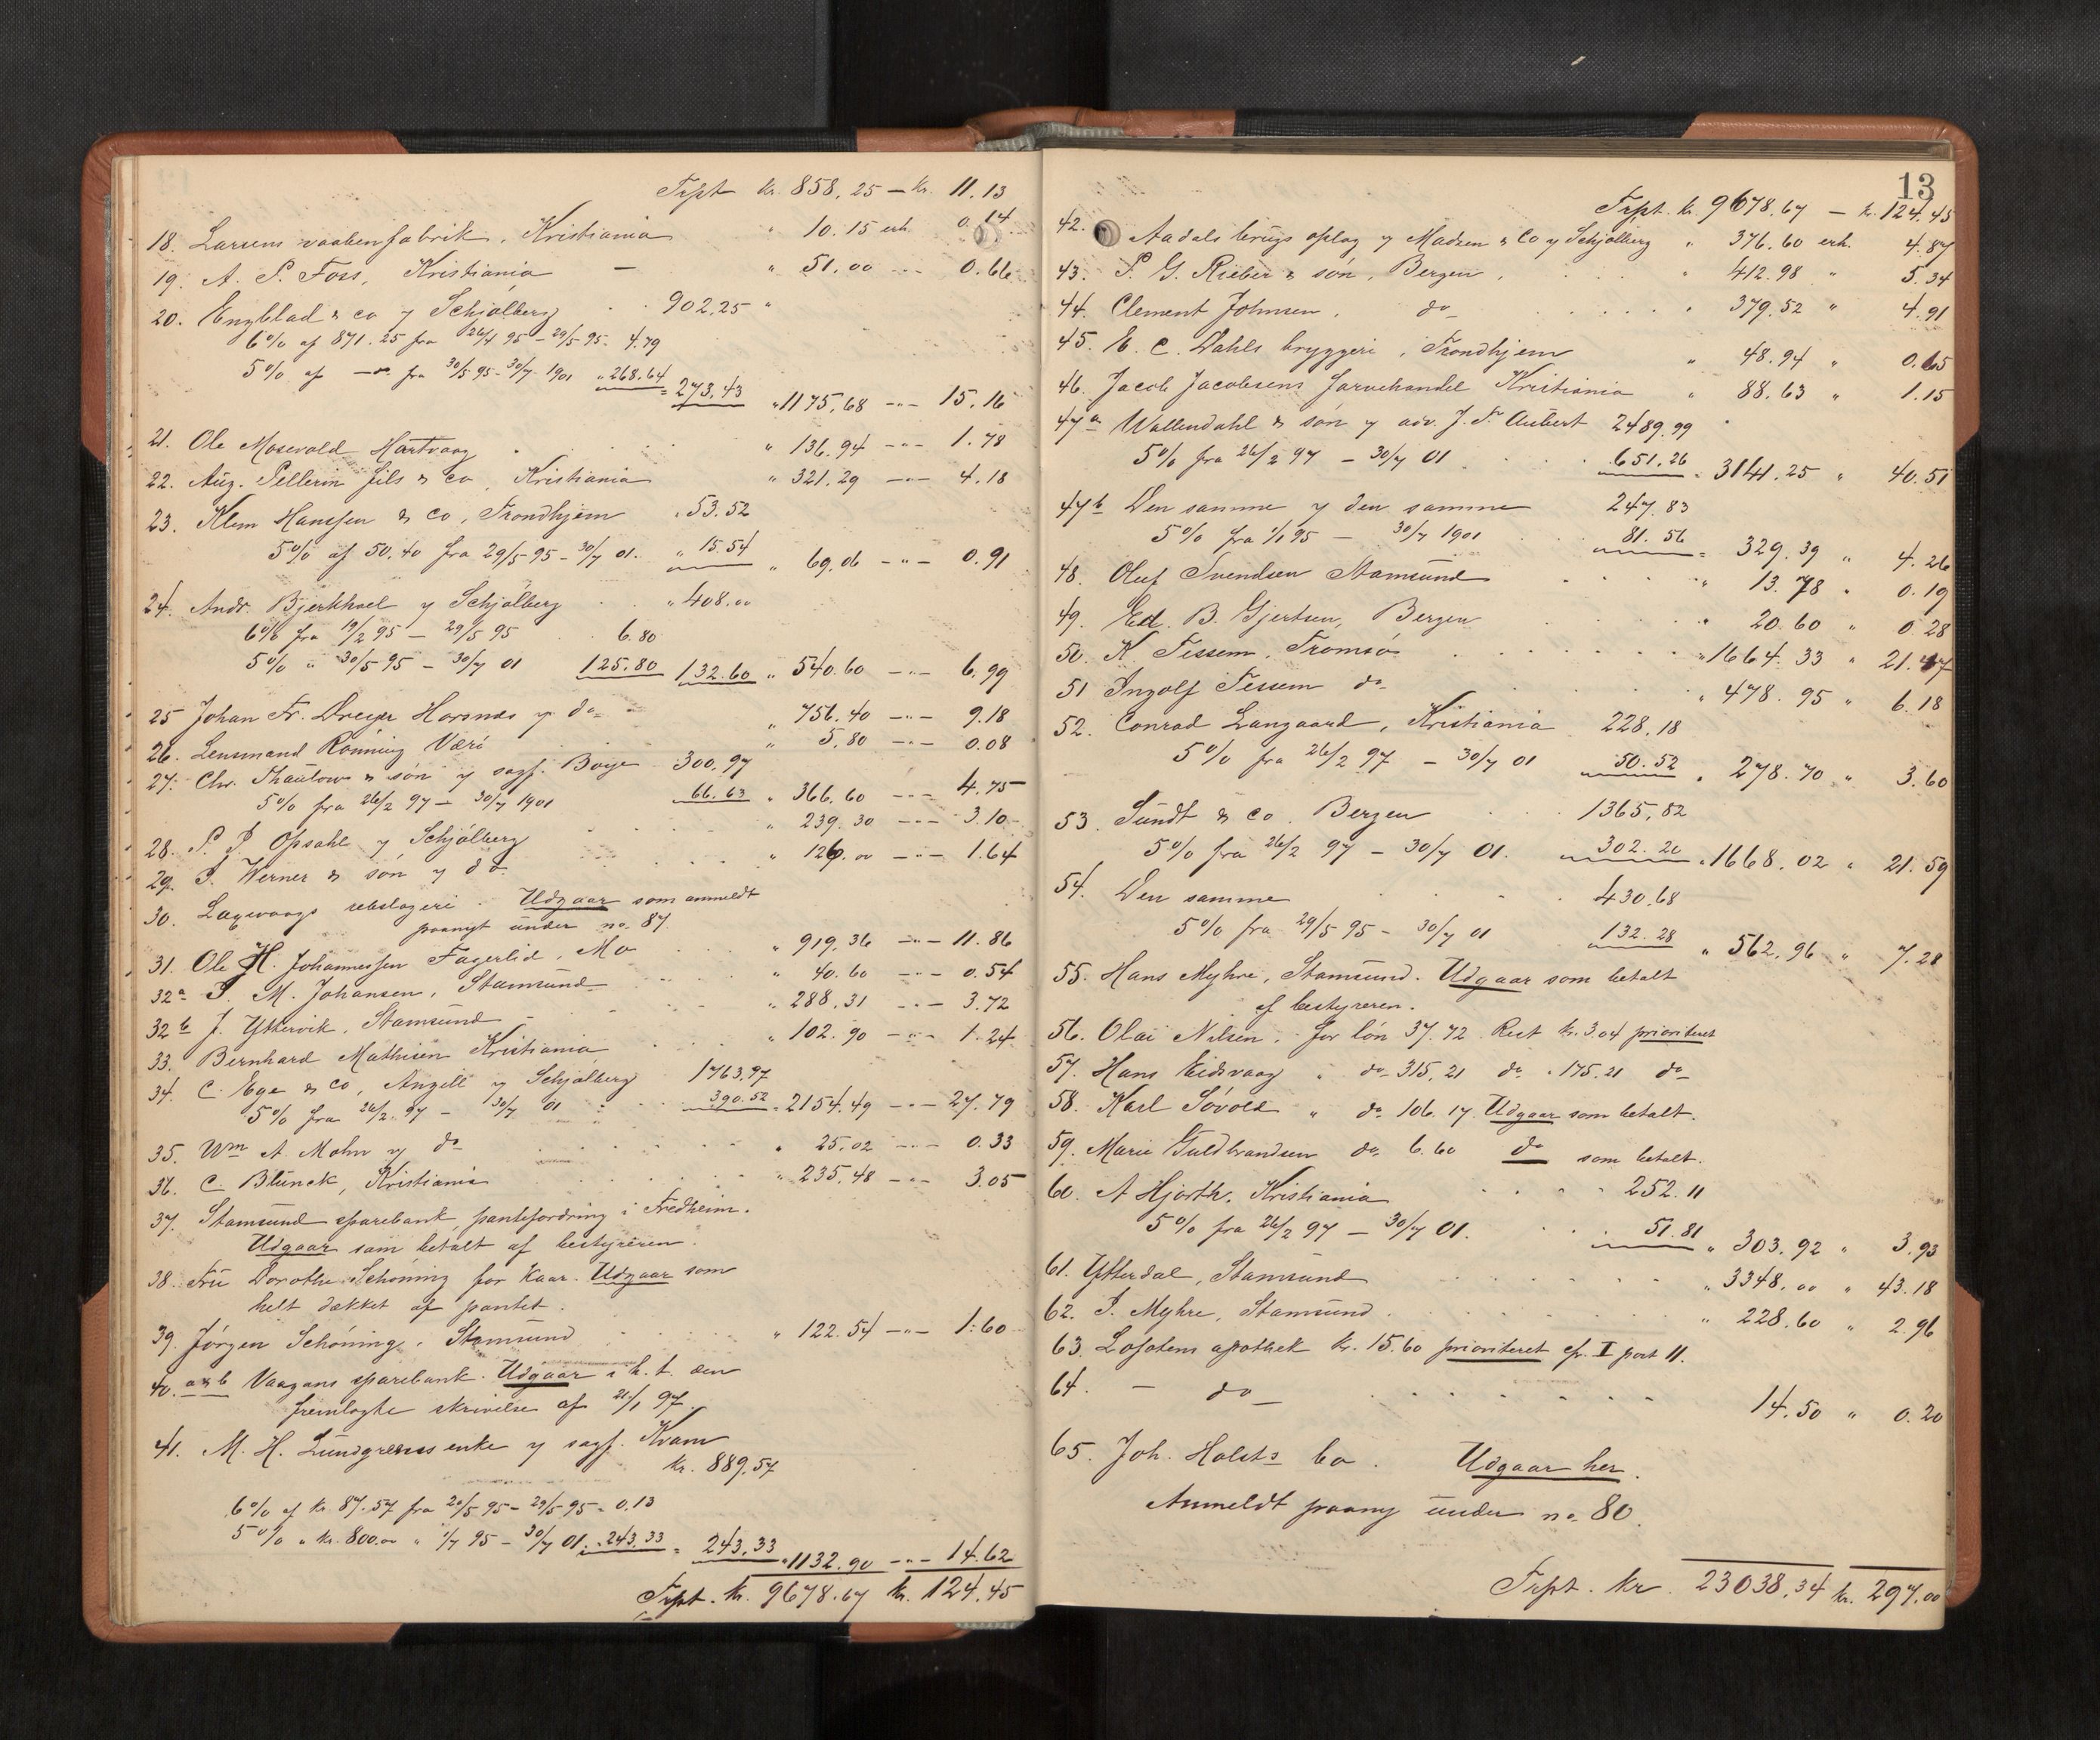 Trpt kr. 858,25 — kr. 11.13
18. Larsens vaabenfabrik, Kristiania " 10.15 erh. 0.14
19. A. P. Foss, Kristiania — " 51.00 -"- 0.66
20. Engblad & co y Schjølberg 902,25 "
6% af 871.25 fra 26/4 95 - 29/5 95. 4.79
5% af —"— fra 30/5 95 - 30/7 1901 " 268.64 = 273.43 " 1175,68 -"- 15.16
21. Ole Mosevold Hartvaag " 136.94 -"- 1.78
22. Aug. Pellerin fils & co, Kristiania " 321.29 -"- 4.18
23. Klem Hanssen & co, Trondhjem " 53.52
5% af 50.40 fra 29/5 95 - 30/7 01. " 15.54 " 69.06 -"- 0.91
24. Andr. Bjerkhoel y Schjølberg " 408.00
6% fra 19/2 95 - 29/5 95 6.80
5% " 30/5 95 - 30/7 01 125.80 132.60 " 540.60 -"- 6.99
25 Johan Fr. Dreyer Horsnes y do " 756.40 -"- 9.18
26. Lensmand Rønning Værø " 5.80 -"- 0.08
27. Chr. Thaulow & søn y sagf. Boye 300.97
5% fra 26/2 97 - 30/7 1901 66.63 " 366.60 -"- 4.75
28. P. P. Opsahl y Schjølberg " 239.30 -"- 3.10
29. P. Werner & søn y do " 126.00 -"- 1.64
30. Laxevaags rebslageri. Udgaar som anmeldt
paanyt under no. 87
31. Ole H. Johannessen Fagerlid, Mo " 919.36 -"- 11.86
32a P. M. Johansen, Stamsund " 40.60 -"- 0.54
32b J. Yttervik, Stamsund " 288.31 -"- 3.72
33. Bernhard Mathisen Kristiania " 102.90 -"- 1.24
34. C. Ege & co, Angell y Schjølberg 1763.97
5% fra 26/2 97 - 30/7 01 390.52 " 2154.49 -"- 27.79
35. Wm A. Mohn y do " 25.02 -"- 0.33
36. C. Blunck, Kristiania " 235.48 -"- 3.05
37. Stamsund sparebank, pantefordring i Fredheim.
Udgaar som betalt af bestyreren.
38. Fru Dorothe Schøning for Kaar. Udgaar som
helt dækket af pantet.
39. Jørgen Schøning, Stamsund " 122.54 -"- 1.60
40. a & b Vaagans sparebank. Udgaar i h. t. den
fremlagte skrivelse af 21/1 97.
41. M. H. Lundgreens enke y sagf. Kvam
kr. 889.57
6% af kr. 87.57 fra 20/5 95 - 29/5 95 = 0.13
5% " kr. 800.00 " 1/7 95 - 30/7 01. " 243.33 = 243.33 " 1132.90 -"- 14.62
Trpt. kr. 9678.67 kr. 124.45
13
Trpt. kr. 9678.67 — kr. 124.45
42. Aadals brugs oplag y Madsen & Co y Schjølberg " 376.60 erh. 4.87
43. P. G. Rieber & søn, Bergen. " 412.98 " 5.34
44. Clement Johnsen, do " 379.52 " 4.91
45. E. C. Dahls bryggeri, Trondhjem " 48.94 " 0.65
46. Jacob Jacobsens farvehandel Kristiania " 88.63 " 1.15
47a Wallendahl & søn y adv. J. F. Aubert 2489.99
5% fra 26/2 97 - 30/7 01 651.26 " 3141.25 " 40.51
47b Den samme y den samme 247.83
5% fra 1/1 95 - 30/7 1901 81.56 = 329.39 " 4.26
48. Oluf Svendsen Stamsund " 13.78 " 0.19
49. Ed. B. Gjertsen, Bergen " 20.60 " 0.28
50. K Tessem, Tromsø " 1664.33 " 21.47
51 Ingolf Tessem do " 478.95 " 6.18
52. Conrad Langaard, Kristiania 228.18
5% fra 26/2 97 - 30/7 01 50.52 " 278.70 " 3.60
53. Sundt & co. Bergen 1365,82
5% fra 26/2 97 - 30/7 01. 302.20 " 1668.02 " 21.59
54. Den samme 430.68
5% fra 29/5 95 - 30/7 01 132.28 " 562.96 " 7.28
55. Hans Myhre, Stamsund. Udgaar som betalt
af bestyreren.
56. Olai Nilsen, for løn 37.72 Rest kr. 3.04 prioriteret
57. Hans Eidsvaag " do 315.21 do " 175.21 do
58. Karl Søvold " do 106.17. Udgaar som betalt.
59. Marie Guldbrandsen do 6.60 do som betalt.
60. A Hjorth, Kristiania 252.11
5% fra 26/2 97 - 30/7 01. 51.81 " 303.92 " 3.93
61. Ytterdal, Stamsund " 3348.00 " 43.18
62. P. Myhre, Stamsund " 228.60 " 2.96
63. Lofotens apothek kr. 15.60 prioriteret cfr. I post 11.
64. — do — 14.50 " 0.20
65. Joh. Holsts bo. Udgaar her.
Anmeldt paany under no. 80.
Trpt. kr. 23038.34 kr. 297.00